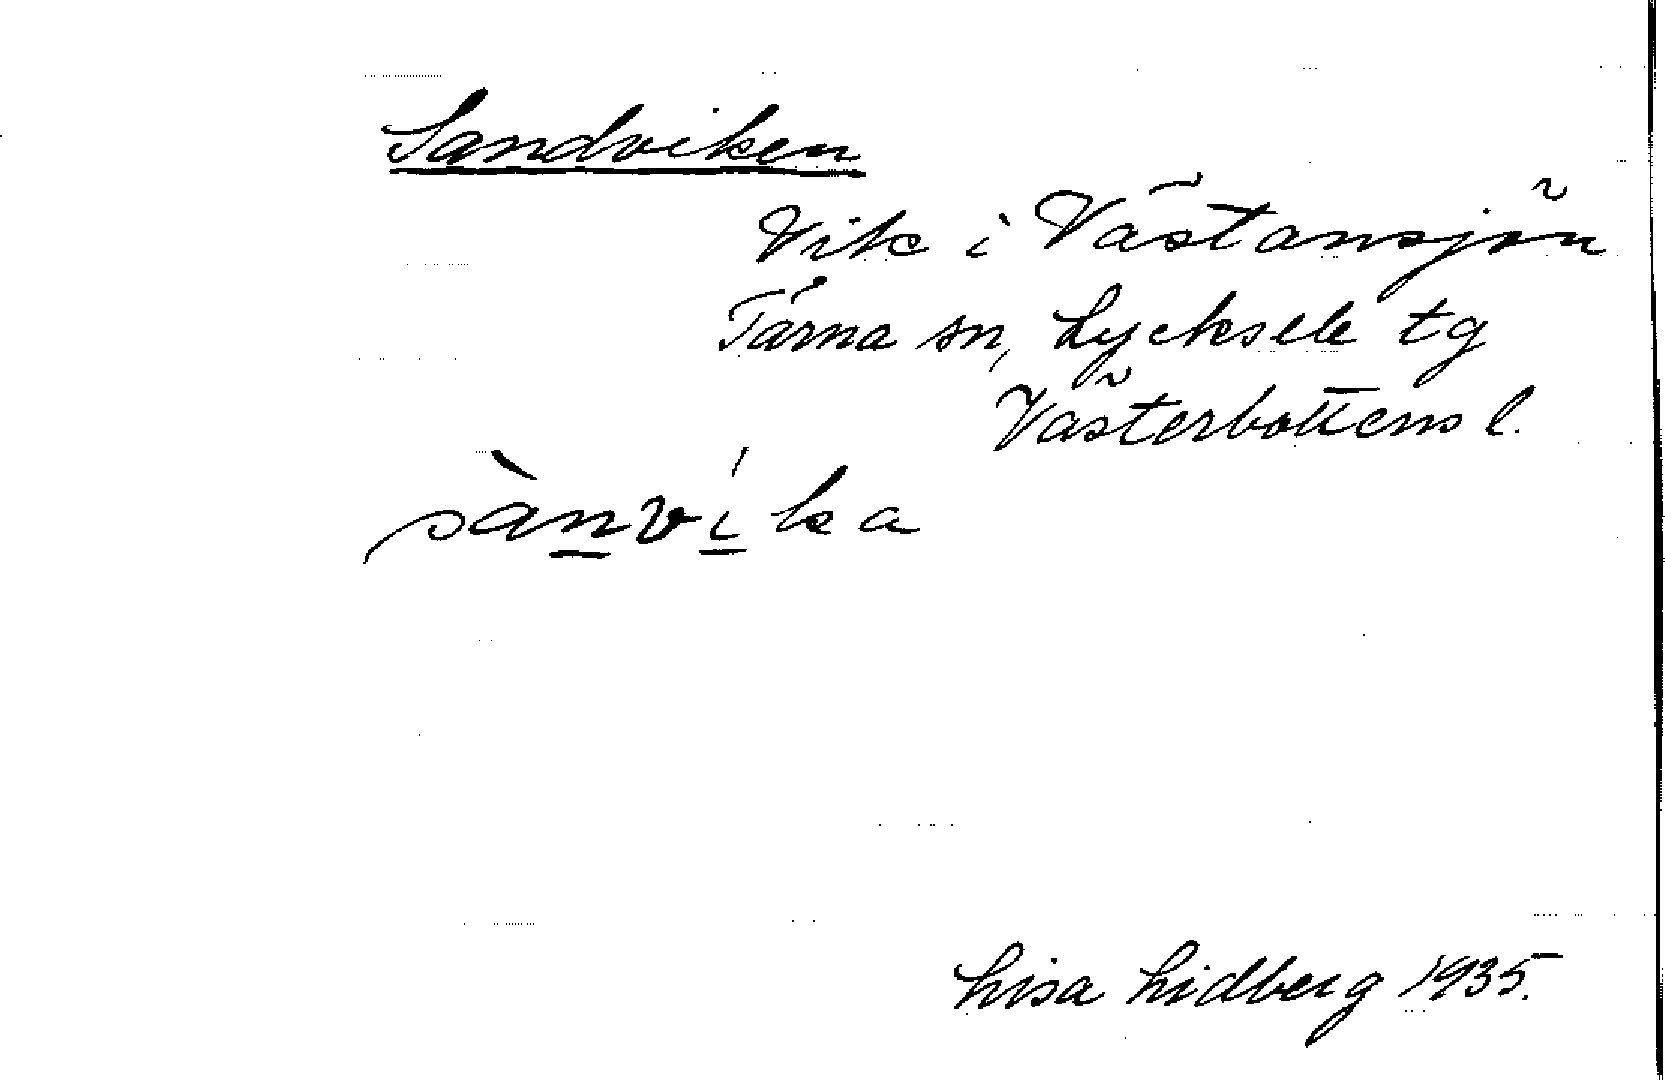 Sandviken
Vik i Västansjön
Tärna sn, Lycksele tg
Västerbottens l.
sàn̲ví̲ka
Lisa Lidberg 1935.